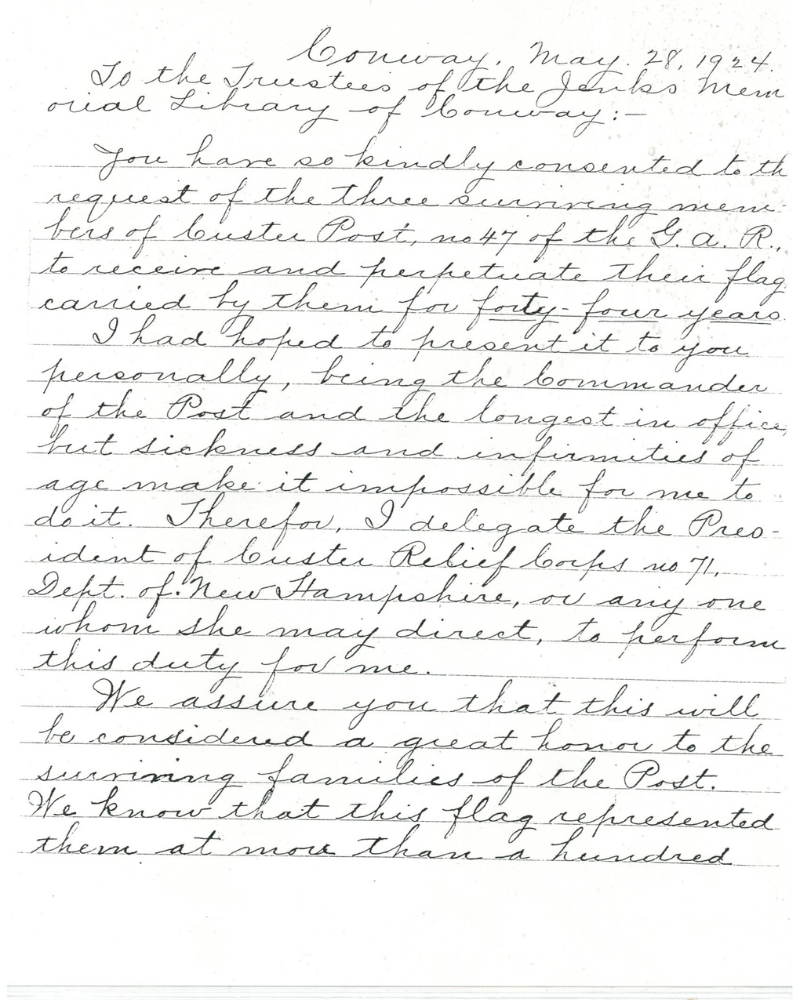 Conway, May. 28, 1924.
To the Trustees of the Jenks Mem
orial Library of Conway:—
You have so kindly consented to th
request of the three surviving mem-
bers of Custer Post, no 47 of the G. A. R.,
to receive and perpetuate their flag
carried by them for forty-four years.
I had hoped to present it to you
personally, being the Commander
of the Post and the longest in office,
but sickness and infirmities of
age make it impossible for me to
do it. Therefor, I delegate the Pres-
ident of Custer Relief Corps no 71,
Dept. of New Hampshire, or any one
whom she may direct, to perform
this duty for me.
We assure you that this will
be considered a great honor to the
surviving families of the Post.
We know that this flag represented
them at more than a hundred